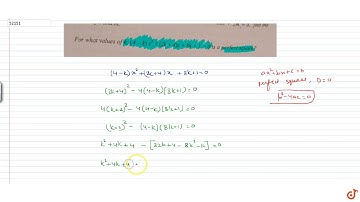 52151
For what values of
is a perfect square
(4-k)x²+(2k+4)x+8k+1=0
(2k+4)²-4(4-k)(8k+1)=0
4(k+2)²-4(4-k)(8k+1)=0
(k+2)²-(4-k)(8k+1)=0
k²+4k+4-[32k+4-8k²-k]=0
k²+4k+4-
ax²+bx+c=0
perfect square, D=0
b²-4ac=0